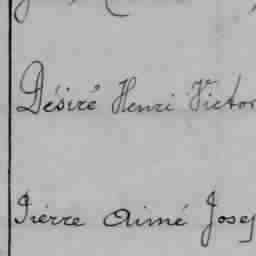 Désiré Henri Victor
Pierre Aimé Josep